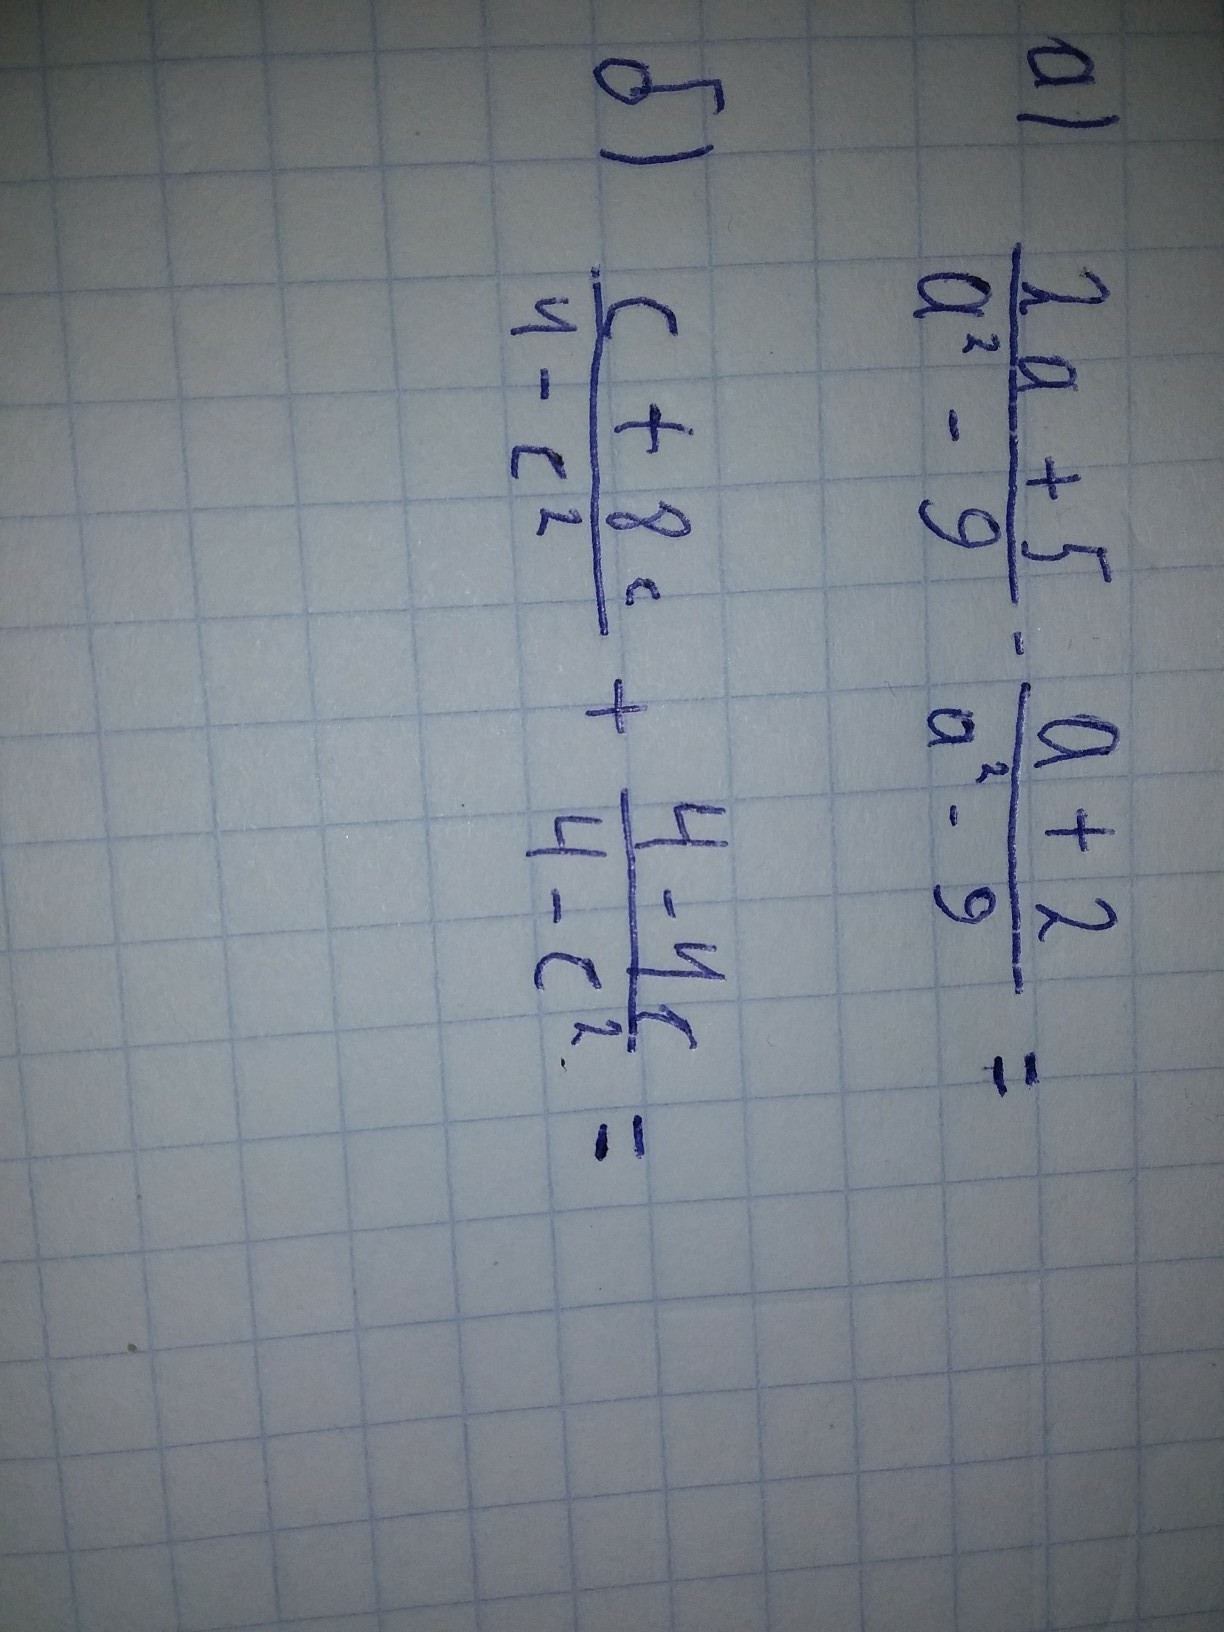 а) (2a + 5)/(a² - 9) - (a + 2)/(a² - 9) =
б) (c + 8c)/(4 - c²) + (4 - 4c)/(4 - c²) =